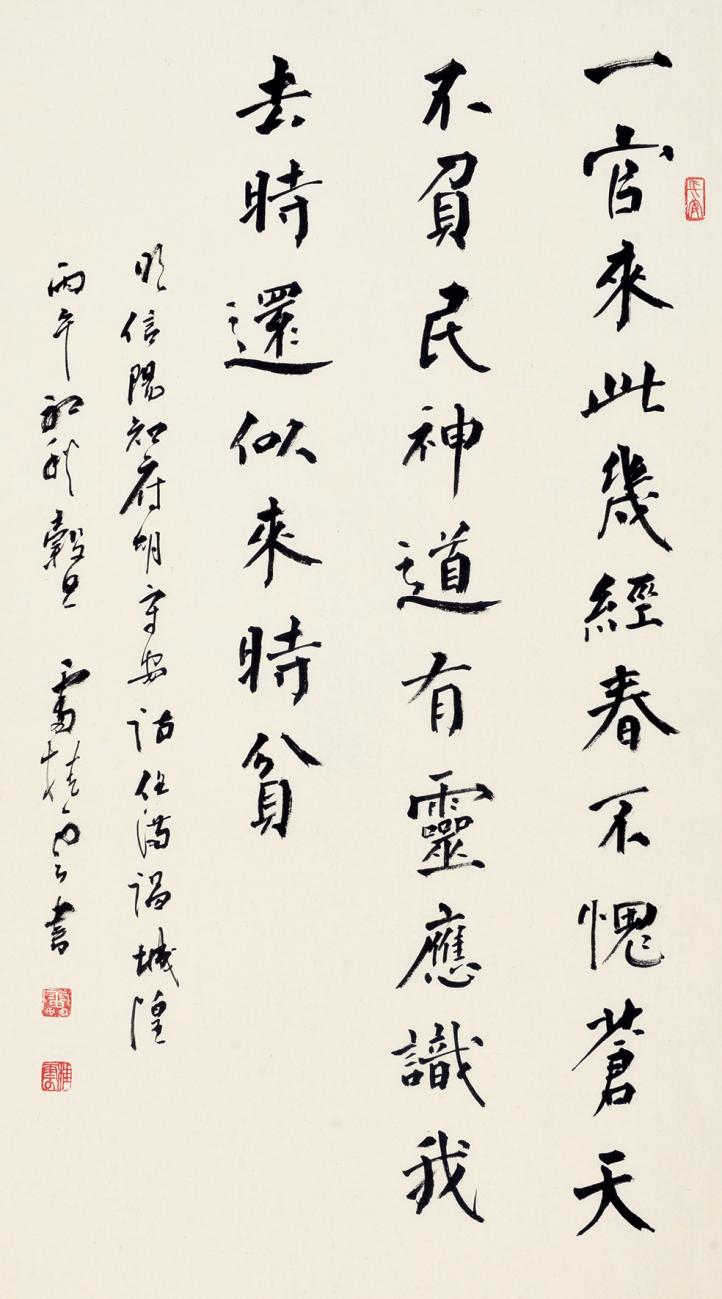 長安
一官來此幾經春不愧蒼天
不負民神道有靈應識我
去時還似來時貧
明信陽知府胡守安任滿謁城隍
丙午初秋穀旦雷書